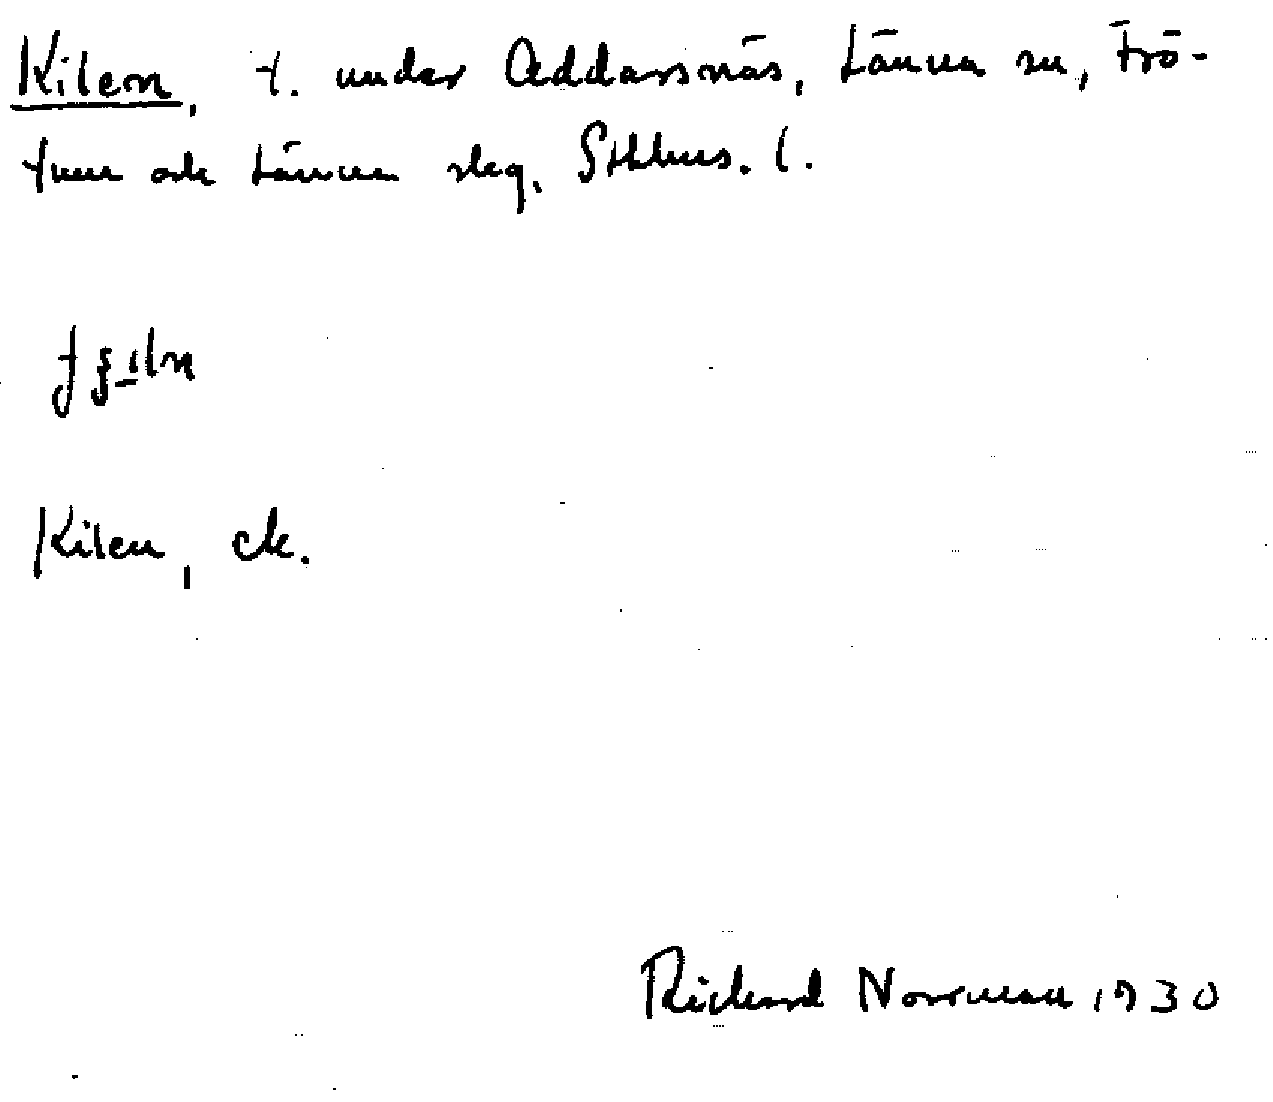 Kilen, t. under Addarsnäs, Länna sn, Frö-
tuna och Länna slag, Sthlms. l.
Kilen, ek.
Richard Norrman 1930